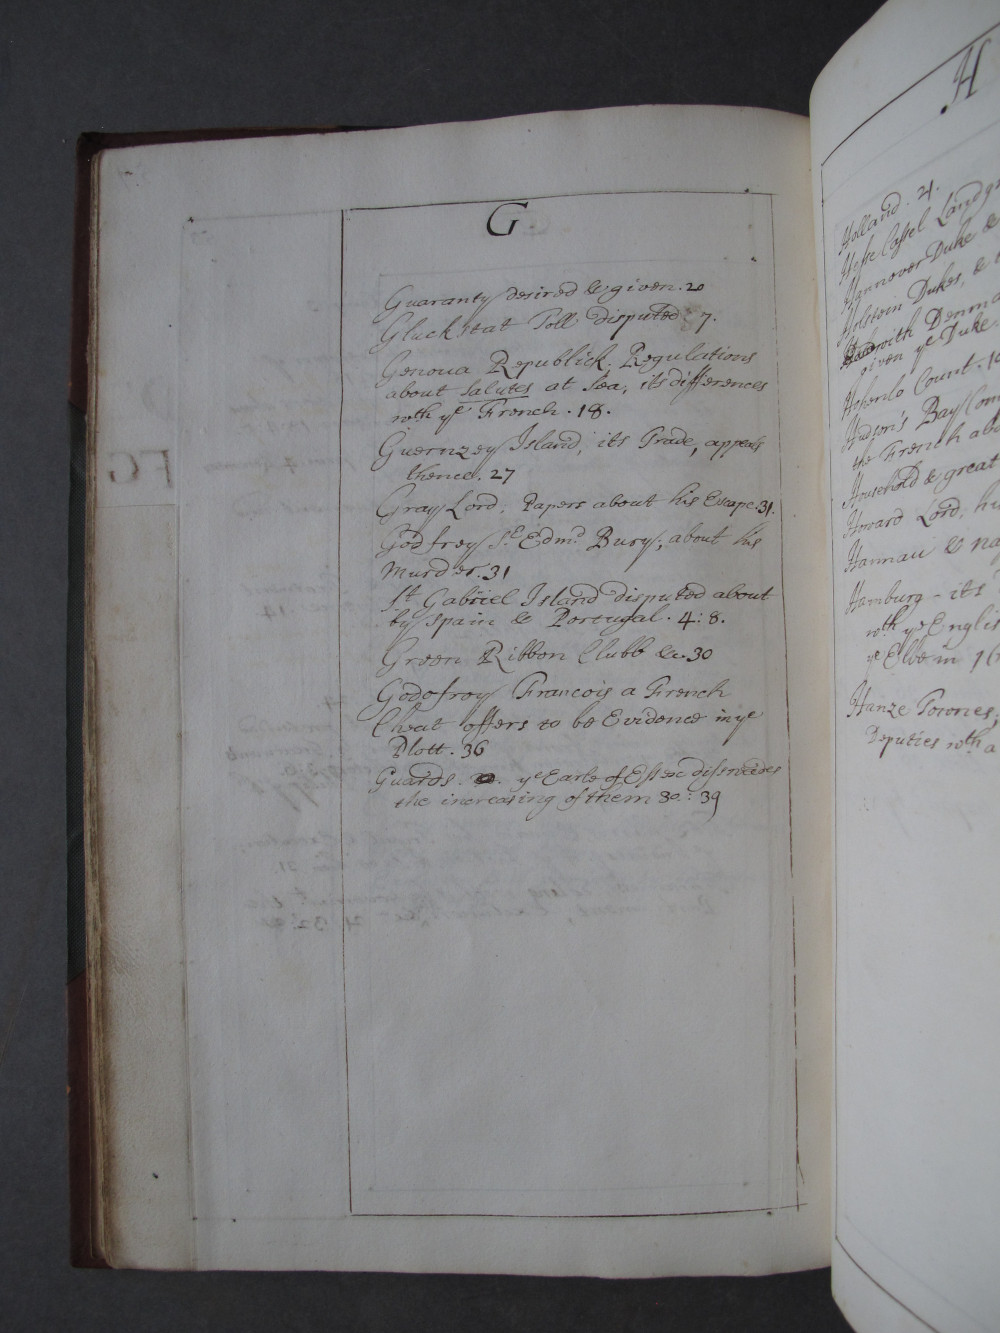 G
Guaranty desired & given . 20
Gluckstat Toll disputed . 7.
Genoua Republick. Regulations
about Salutes at Sea, its differences
wth ye French . 18.
Guernzey Island, its Trade, appeals
thence. 27
Gray Lord. Papers about his Escape. 31.
Godfrey Sr. Edmd Bury, about his
Murder. 31
St Gabriel Island disputed about
by Spain & Portugal . 4 : 8.
Green Ribbon Clubb &c. 30
Godofroy Francois a French
Cheat offers to be Evidence in ye
Plott . 36
Guards. ye Earle of Essex disswades
the increasing of them 30 : 39
H
Holland . 21.
Hesse Cassel Landgr
Hannover Duke &
Holstein Dukes, &
with Denma
given ye Duke
Hohenlo Count . 1
Hudson's Bay Com
the French abo
Household & great
Howard Lord, hi
Hannau & Na
Hamburg - its
wth ye Englis
ye Elbe in 16
Hanze Townes,
Deputies wth a
FG